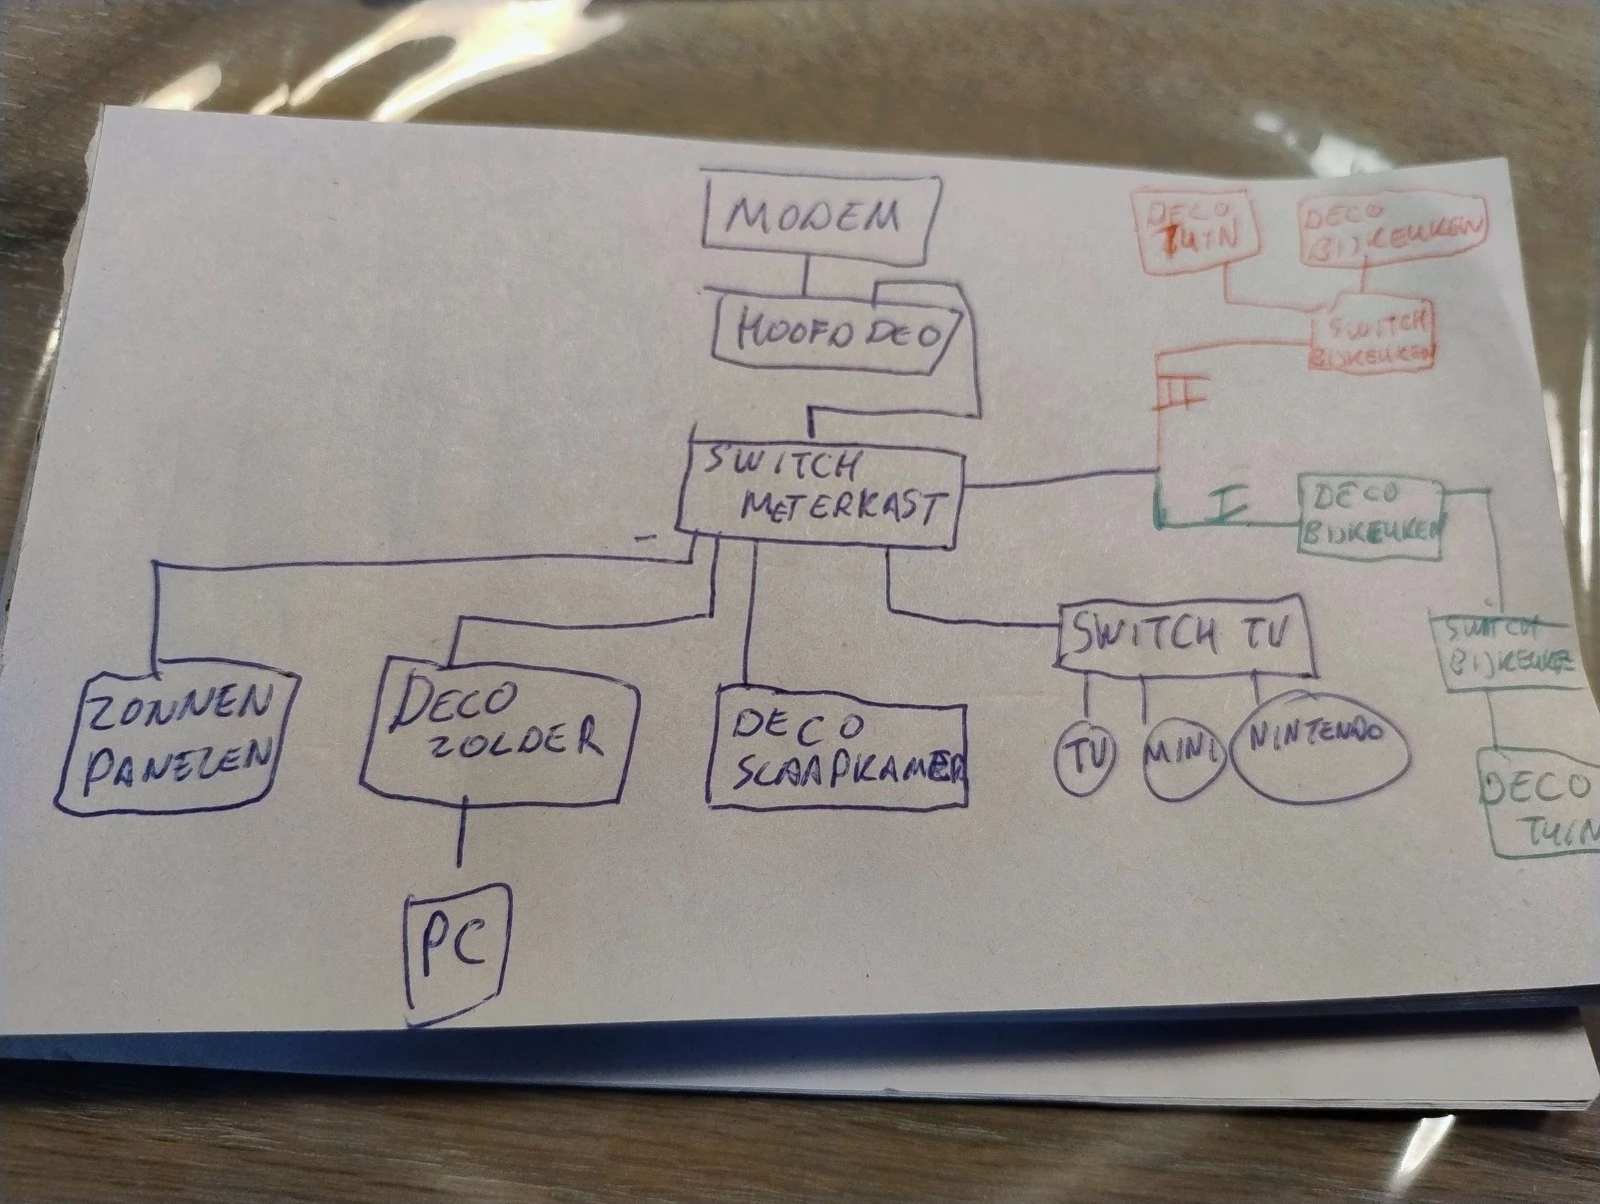 MODEM
HOOFD DEO
SWITCH
METERKAST
DECO
TUIN
DECO
BIJKEUKEN
SWITCH
BIJKEUKEN
II
I
DECO
BIJKEUKEN
SWITCH
BIJKEUKE
DECO
TUIN
ZONNEN
PANELEN
DECO
ZOLDER
DECO
SLAAPKAMER
SWITCH TV
TV
MINI
NINTENDO
PC